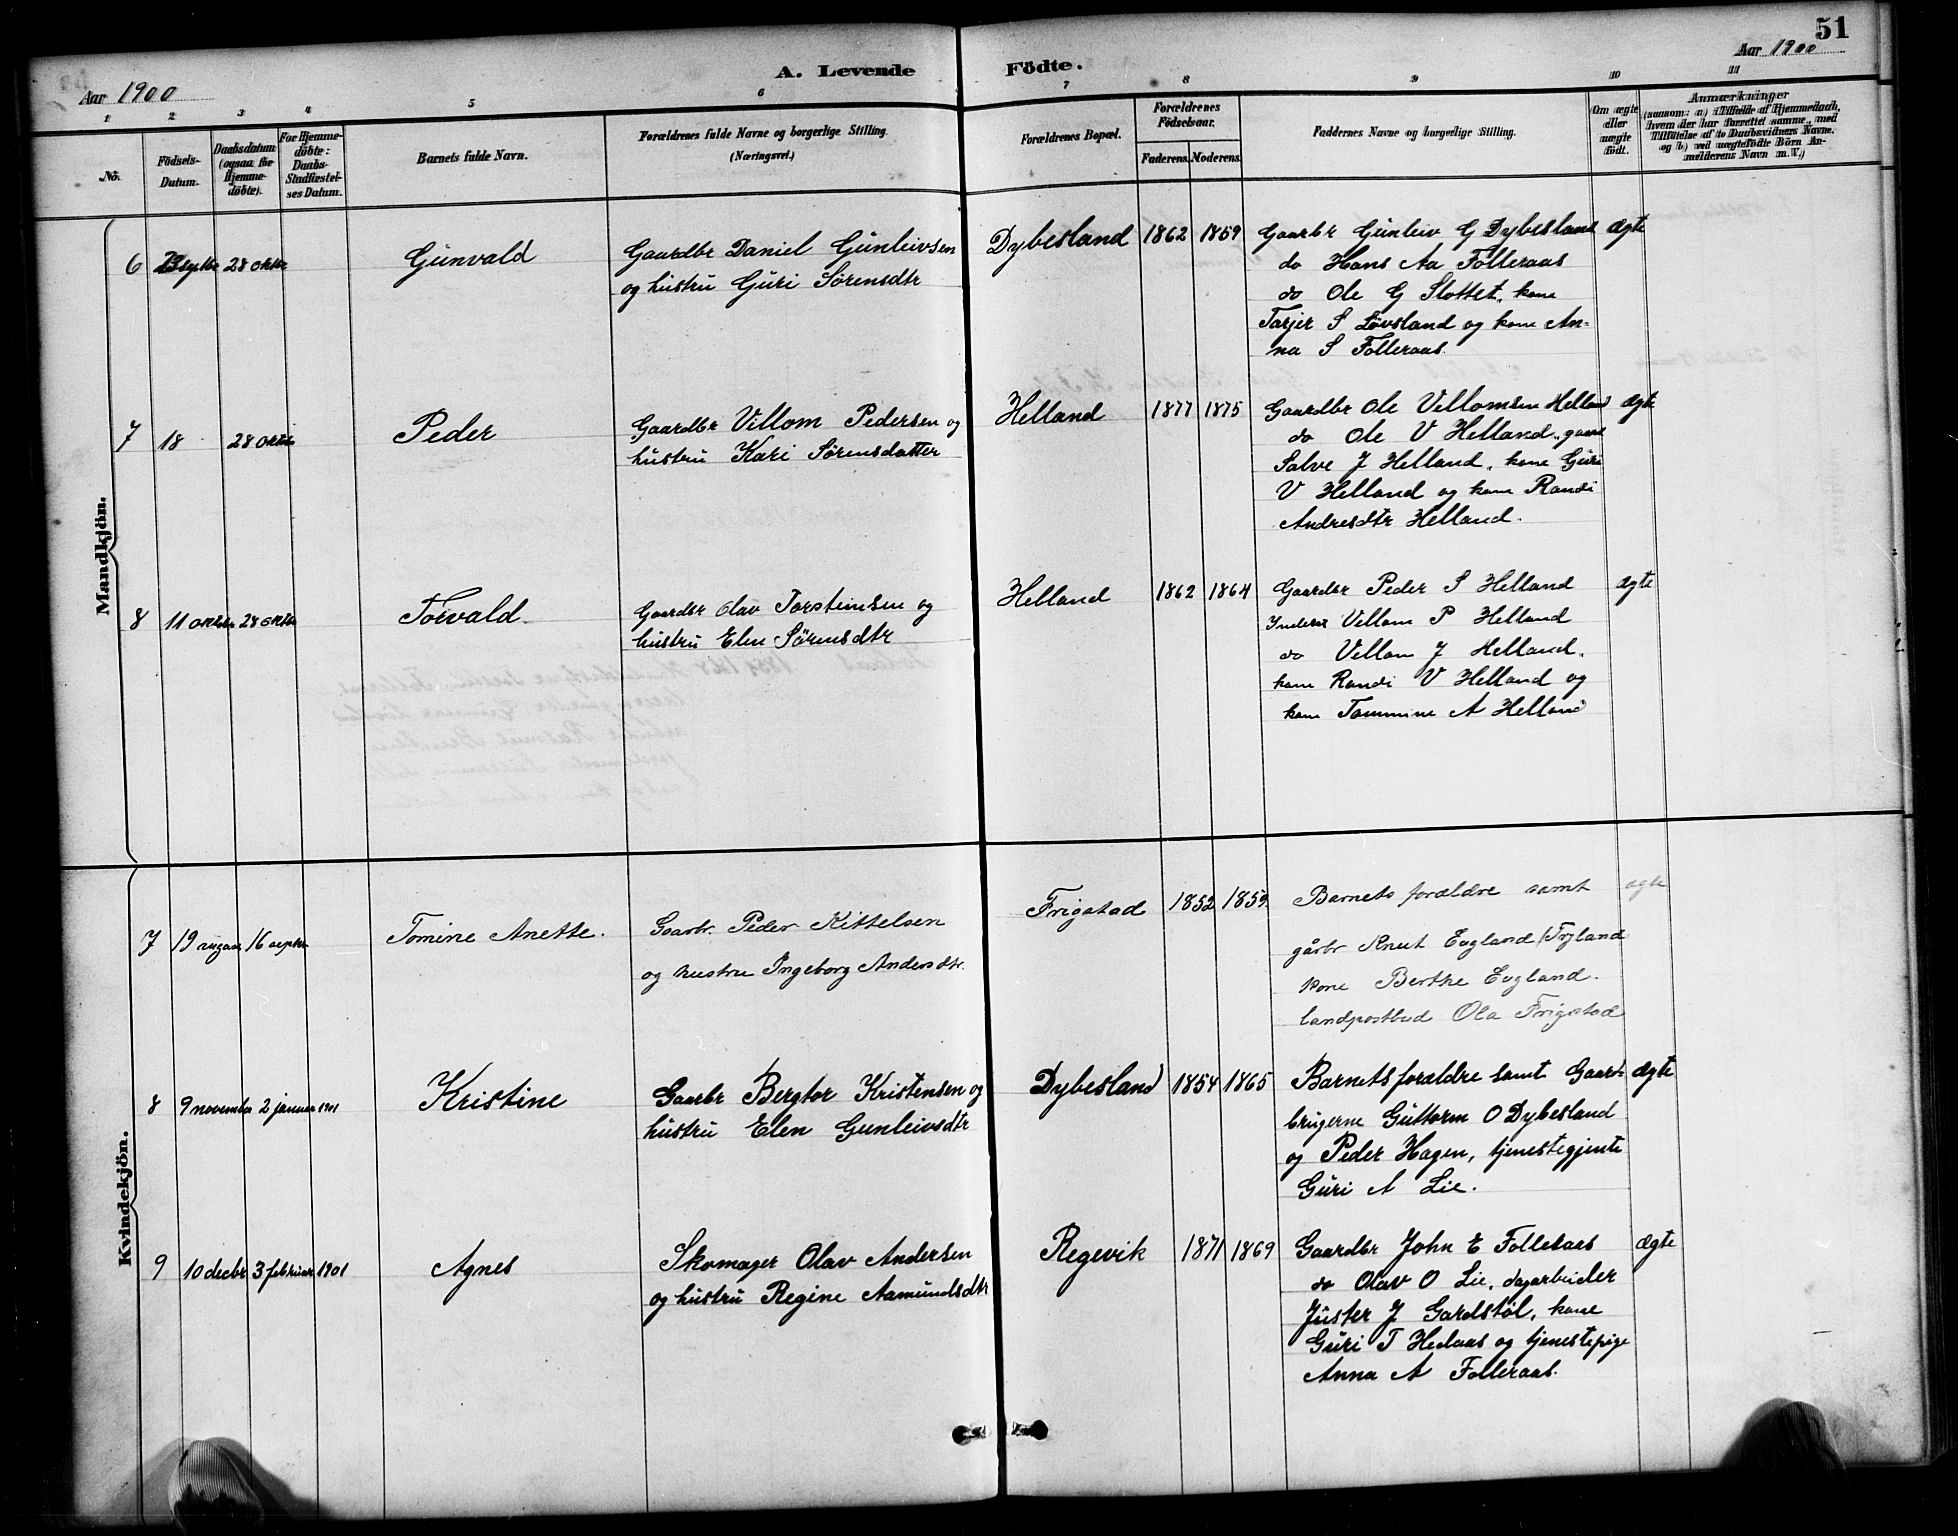 51
Aar 1900
A. Levende Födte.
Aar 1900
1 2 3 4 5 6 7 8 9 10 11
No.
Födsels-
Datum.
Daabsdatum
(ogsaa for
Hjemme-
döbte).
For Hjemme-
döbte:
Daabs-
Stadfæstel-
ses Datum.
Barnets fulde Navn.
Forældrenes fulde Navne og borgerlige Stilling.
(Næringsvei.)
Forældrenes Bopæl.
Forældrenes
Födselsaar.
Faderens. Moderens.
Faddernes Navne og borgerlige Stilling.
Om ægte
eller
uægte
født.
Anmærkninger
(saasom: a) i Tilfælde af Hjemmedaab,
hvem der har forrettet samme, med
Tilföielse af to Daabsvidners Navne.
og b) ved uægtefödte Börn An-
melderens Navn m. V.)
Mandkjön.
6 septbr 28 oktbr Gunvald
Gaardbr Daniel Gunleivsen
og hustru Guri Sørensdtr
Dybesland 1862 1859
Gaarbr Gunleiv G Dybesland ægte
do Hans Aa Folleraas
do Ole G Slottet, kone
Tarjer S Løvsland og kone An-
na S Folleraas.
7 18 28 oktbr Peder
Gaardbr Villom Pedersen og
hustru Kari Sørensdatter
Helland 1877 1875
Gaardbr Ole Vellomsen Helland ægte
do Ole V Helland, gaard
Salve J Helland, kone Guri
V Helland og kone Randi
Andresdtr Helland.
8 11 oktbr 28 oktbr Torvald
Gaardbr Olav Torsteinsen og
hustru Elen Sørensdtr
Helland 1862 1864
Gaardbr Peder S Helland ægte
Inderst Vellom P Helland
do Vellom J Helland,
kone Randi V Helland og
kone Tommine A Helland
Kvindekjön.
7 19 august 16 septbr Tomine Anette.
Gaarbr. Peder Kittelsen
og hustru Ingeborg Andersdtr.
Frigstad 1852 1859.
Barnets forældre samt ægte
gårbr Knut Eugland / Tryland
kone Berthe Eugland.
landpostbud Ola Frigstad
8 9 november 2 januar 1901 Kristine
Gaarbr Bergtor Kristensen og
hustru Elen Gunleivsdtr
Dybesland 1854 1865
Barnets forældre samt Gaard- ægte
brugerne Guttorm O Dybesland
og Peder Hagen, tjenestegjente
Guri A Lie.
9 10 decbr 3 februar 1901 Agnes
Skomager Olav Andersen
og hustru Regine Aamundsdtr
Regevik 1871 1869
Gaardbr John E Folleraas ægte
do Olav O Lie, dagarbeider
Juster J Gardstøl, kone
Guri T Hedaas og tjenestepige
Anna A Folleraas.